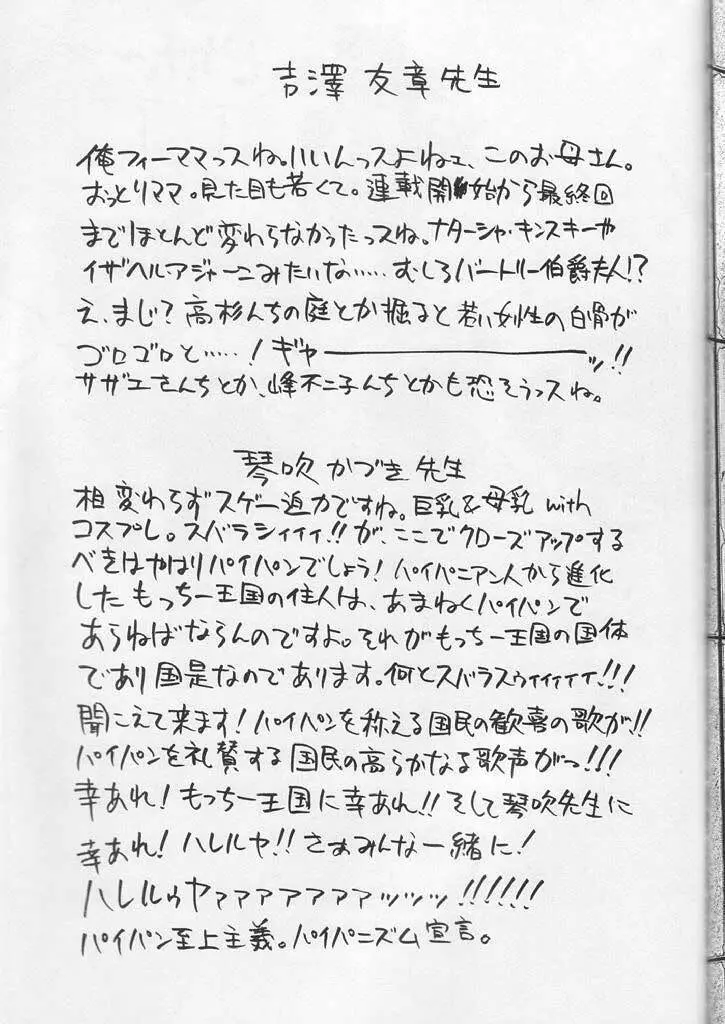 吉澤 友章先生
俺フィーママっスね。いいんっスよねェ、このお母さん。
おっとりママ。見た目も若くて。連載開始から最終回
までほとんど変わらなかったっスね。ナターシャ・キンスキーや
イザベル・アジャーニみたいな……むしろバートリー伯爵夫人!?
え、まじ?高杉んちの庭とか掘ると若い女性の白骨が
ゴロゴロと……!ギャーーーーーーーッ!!
サザエさんちとか、峰不二子んちとかも恐そうっスね。
琴吹かづき先生
相変わらずスゲー迫力ですね。巨乳&母乳 with
コスプレ。スバラシィィィ!!が、ここでクローズアップする
べきはやはりパイパンでしょう!パイパニアン人から進化
したもっちー王国の住人は、あまねくパイパンで
あらねばならんのですよ。それがもっちー王国の国体
であり国是なのであります。何とスバラスゥィィィィィ!!!
聞こえて来ます!パイパンを称える国民の歓喜の歌が!!
パイパンを礼賛する国民の高らかなる歌声がっ!!!
幸あれ!もっちー王国に幸あれ!!そして琴吹先生に
幸あれ!ハレルヤ!!さぁみんな一緒に!
ハレルゥヤァァァァァァァッッッ!!!!!!
パイパン至上主義。パイパニズム宣言。